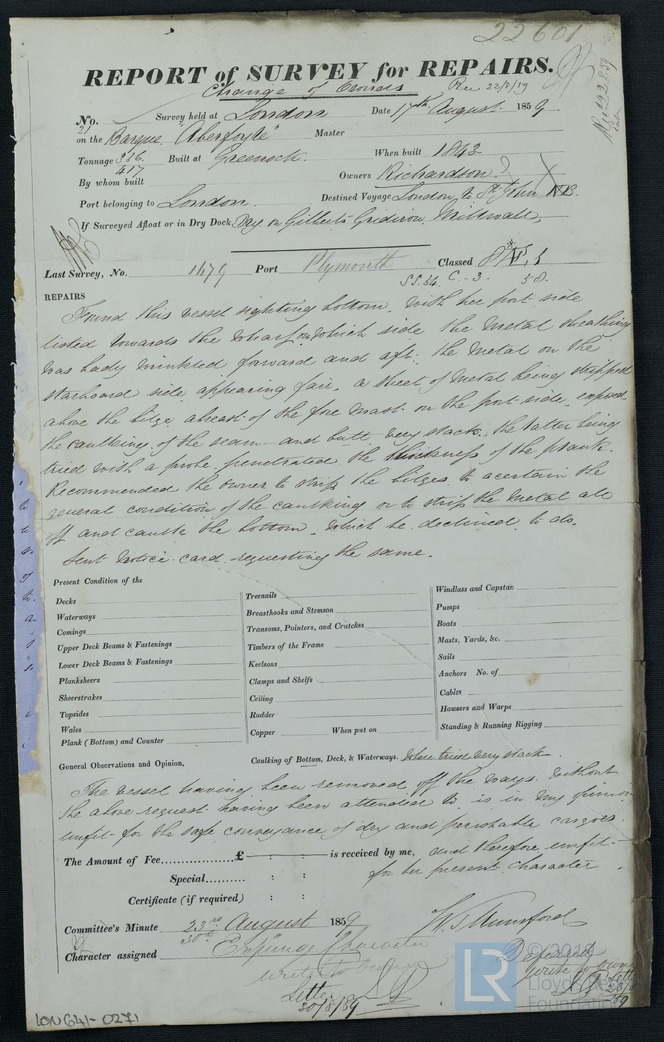 22601
REPORT of SURVEY for REPAIRS.
Change of Owners Rec 22/8/59
No. Survey held at London Date 17th August 1859
21
on the Barque "Aberfoyle" Master
Tonnage 386 Built at Greenock When built 1843
417
By whom built Owners Richardson
Port belonging to London Destined Voyage London to St John NB.
If Surveyed Afloat or in Dry Dock Dry on Gilbert's Gridiron, Millwall,
Last Survey, No. 1479 Port Plymouth Classed
SS.54 C-3. 58.
REPAIRS
Found this vessel sighting bottom, with her port side
listed towards the wharf, on which side the metal sheathing
was badly wrinkled forward and aft: the metal on the
starboard side appearing fair, a sheet of metal being stripped
above the bilge ahead of the fore mast on the port side exposed
the caulking of the seam and butt very slack, the latter being
tried with a probe penetrated the thickness of the plank.
Recommended the owner to strip the bilges to acertain the
general condition of the caulking or to strip the metal all
off and caulk the bottom, which he declined to do.
Sent notice card requesting the same.
Present Condition of the
Decks
Waterways
Comings
Upper Deck Beams & Fastenings
Lower Deck Beams & Fastenings
Planksheers
Sheerstrakes
Topsides
Wales
Plank (Bottom) and Counter
Treenails
Breasthooks and Stemson
Transoms, Pointers, and Crutches
Timbers of the Frame
Keelsons
Clamps and Shelfs
Ceiling
Rudder
Copper When put on
Windlass and Capstan
Pumps
Boats
Masts, Yards, &c.
Sails
Anchors No. of
Cables
Hawsers and Warps
Standing & Running Rigging
General Observations and Opinion, Caulking of Bottom, Deck, & Waterways. Where tried very slack.
The vessel having been removed off the ways without
the above request having been attended to, is in my opinion
unfit for the safe conveyance of dry and perishable cargoes
The Amount of Fee............... £ : : is received by me, and therefore unfit
for her present character
Special.......... : :
Certificate (if required) : :
Committee's Minute 23rd August 1859 H. J. Mumford
30th
Character assigned Expunge Character
Deferred
write to owner
Letter
30/8/59
© 2019
LR Lloyd's Register
Foundation
LON641-0271